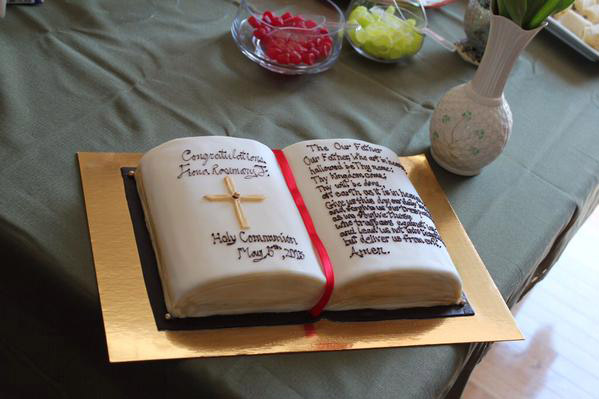 Congratulations,
Fiona Rosemary J.
Holy Communion
May 5th, 2013
The Our Father
Our Father, Who art in heaven
hallowed be Thy name
Thy Kingdom come
Thy will be done
on earth, as it is in heaven
Give us this day our daily bread
and forgive us our trespasses
as we forgive those
who trespass against us
and lead us not into temptation
but deliver us from evil.
Amen.